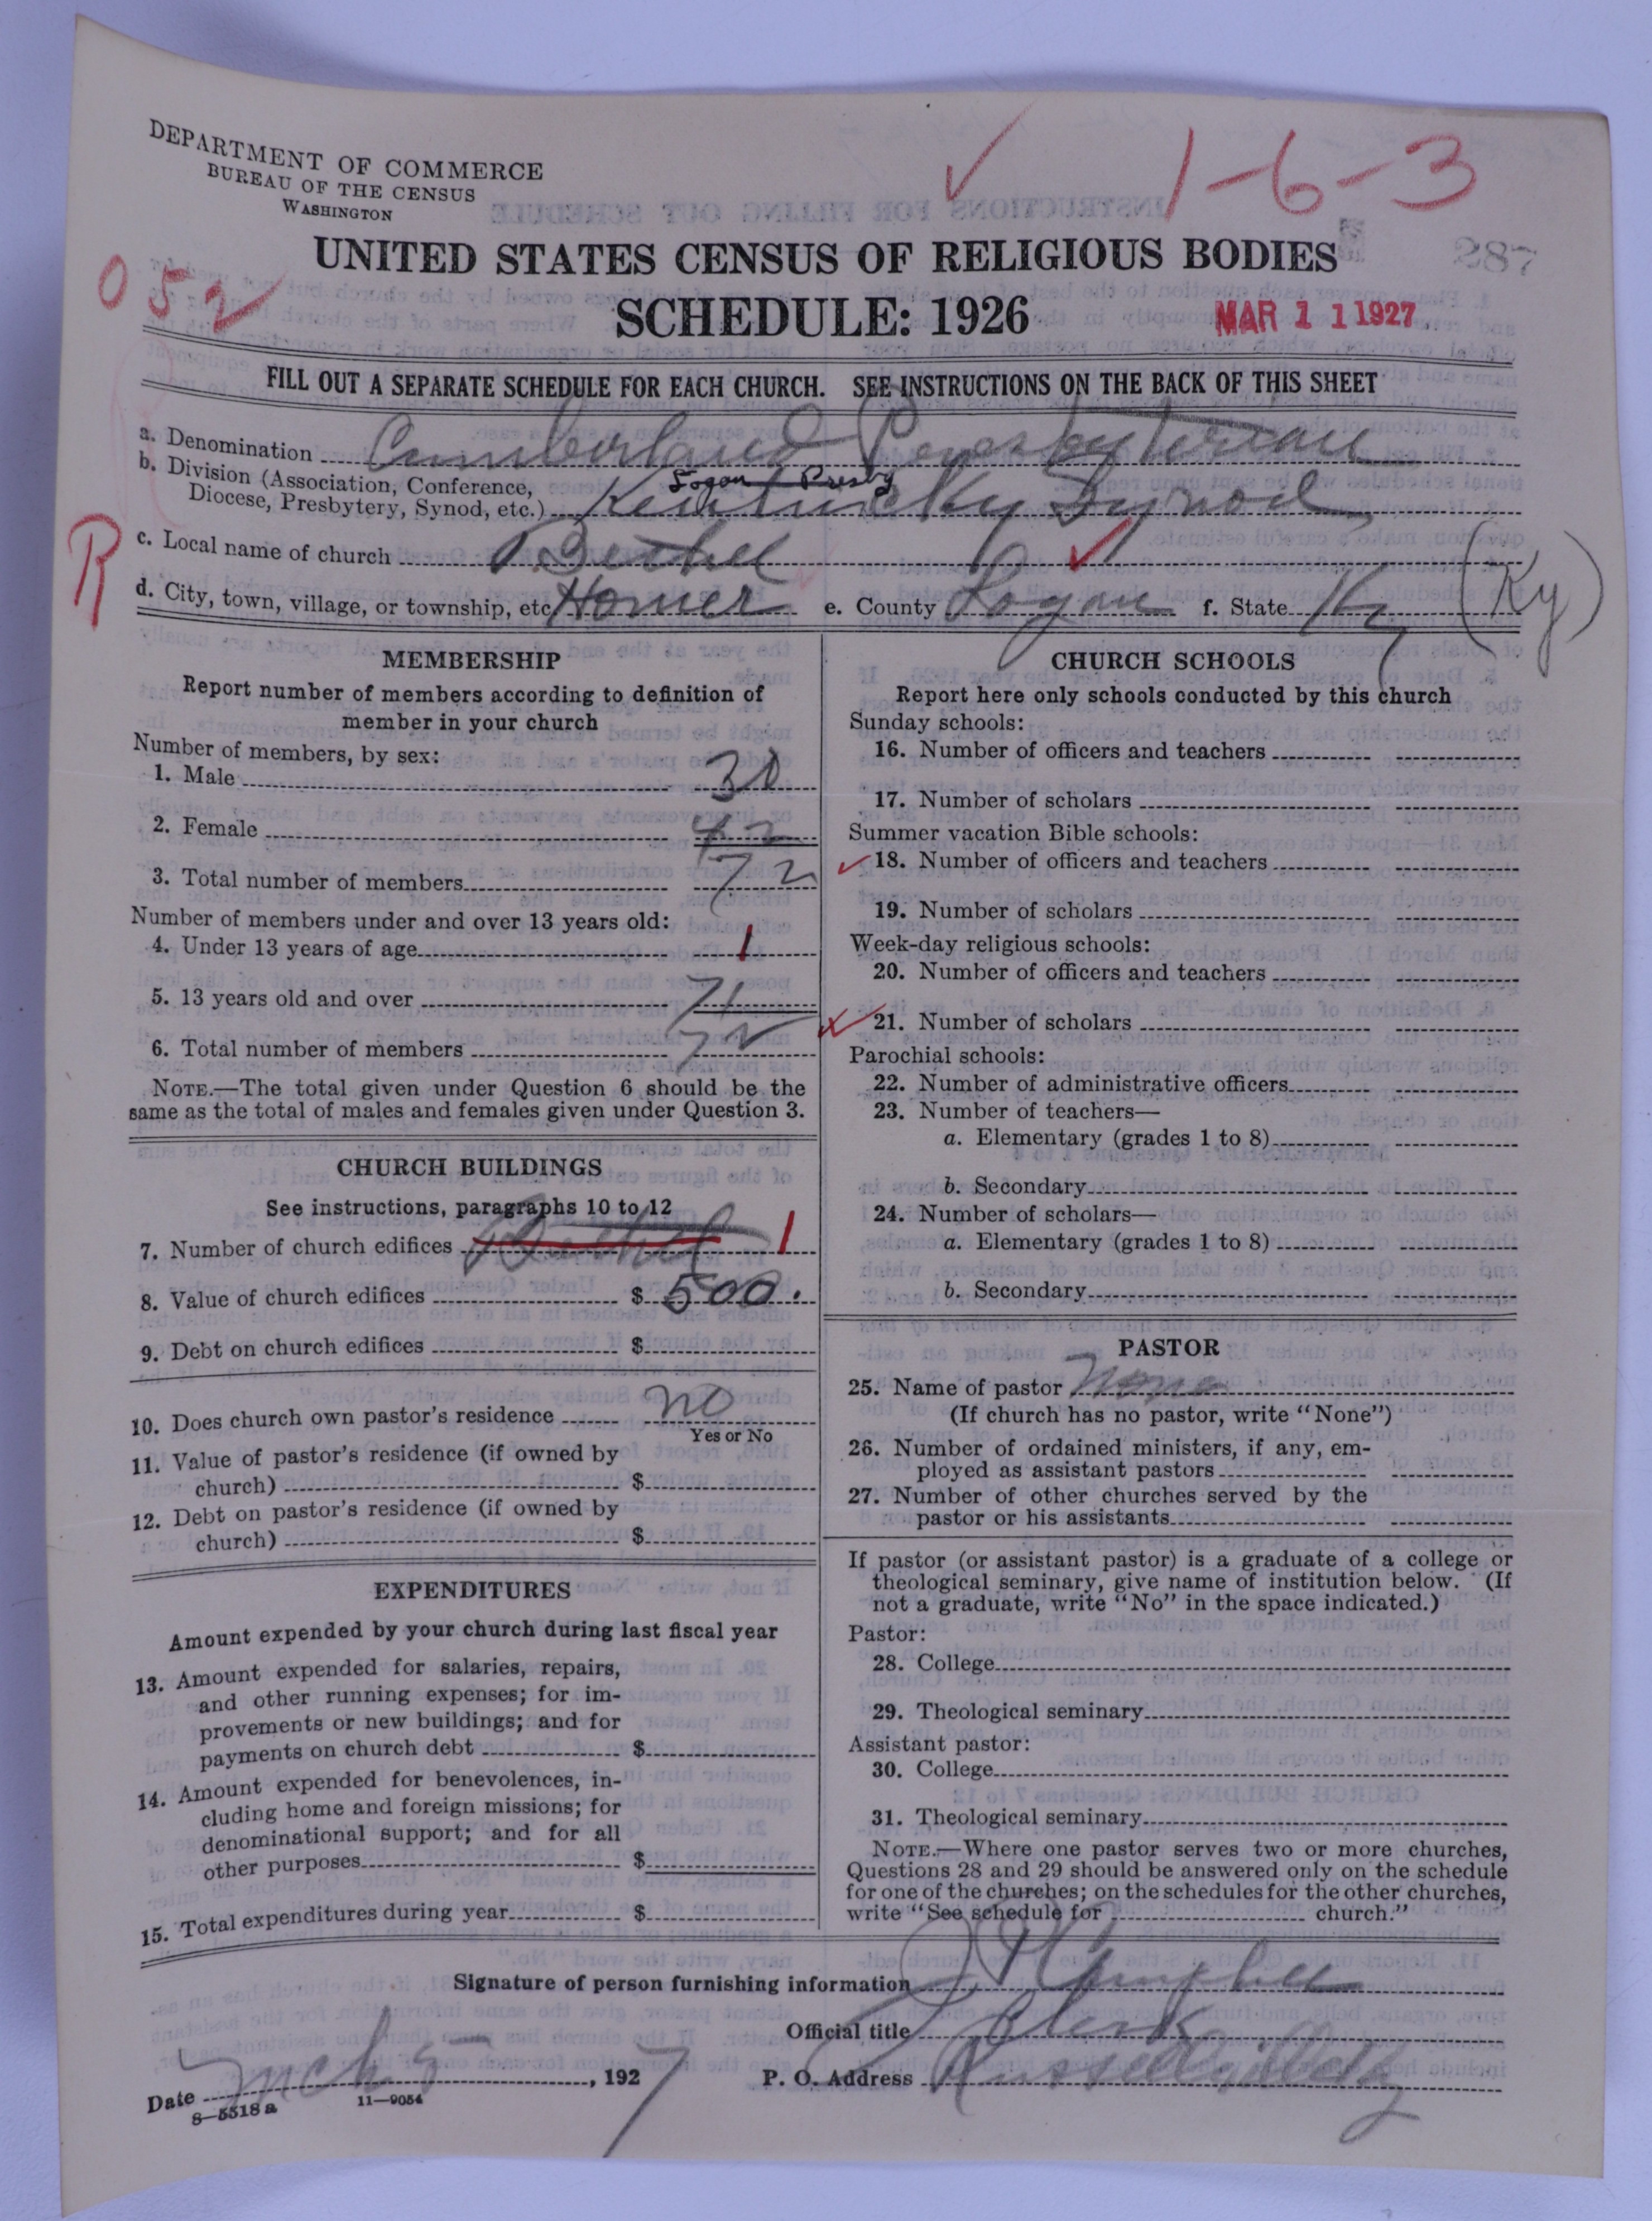 DEPARTMENT OF COMMERCE
BUREAU OF THE CENSUS
WASHINGTON
1-6-3
287
UNITED STATES CENSUS OF RELIGIOUS BODIES
052
SCHEDULE: 1926
MAR 11 1927
FILL OUT A SEPARATE SCHEDULE FOR EACH CHURCH. SEE INSTRUCTIONS ON THE BACK OF THIS SHEET
a. Denomination Cumberland Presbyterian
b. Division (Association, Conference, Logan Presby
Diocese, Presbytery, Synod, etc.) Kentucky Synod
R
c. Local name of church Bethel
d. City, town, village, or township, etc. Homer e. County Logan f. State Ky (Ky)
MEMBERSHIP
Report number of members according to definition of
member in your church
Number of members, by sex:
1. Male 30
2. Female 42
3. Total number of members 72
Number of members under and over 13 years old:
4. Under 13 years of age 1
5. 13 years old and over 71
6. Total number of members 72
NOTE.—The total given under Question 6 should be the
same as the total of males and females given under Question 3.
CHURCH BUILDINGS
See instructions, paragraphs 10 to 12
7. Number of church edifices Bethel 1
8. Value of church edifices $ 500.
9. Debt on church edifices $
10. Does church own pastor's residence no
Yes or No
11. Value of pastor's residence (if owned by
church) $
12. Debt on pastor's residence (if owned by
church) $
EXPENDITURES
Amount expended by your church during last fiscal year
13. Amount expended for salaries, repairs,
and other running expenses; for im-
provements or new buildings; and for
payments on church debt $
14. Amount expended for benevolences, in-
cluding home and foreign missions; for
denominational support; and for all
other purposes $
15. Total expenditures during year $
CHURCH SCHOOLS
Report here only schools conducted by this church
Sunday schools:
16. Number of officers and teachers
17. Number of scholars
Summer vacation Bible schools:
18. Number of officers and teachers
19. Number of scholars
Week-day religious schools:
20. Number of officers and teachers
21. Number of scholars
Parochial schools:
22. Number of administrative officers
23. Number of teachers—
a. Elementary (grades 1 to 8)
b. Secondary
24. Number of scholars—
a. Elementary (grades 1 to 8)
b. Secondary
PASTOR
25. Name of pastor None
(If church has no pastor, write "None")
26. Number of ordained ministers, if any, em-
ployed as assistant pastors
27. Number of other churches served by the
pastor or his assistants
If pastor (or assistant pastor) is a graduate of a college or
theological seminary, give name of institution below. (If
not a graduate, write "No" in the space indicated.)
Pastor:
28. College
29. Theological seminary
Assistant pastor:
30. College
31. Theological seminary
NOTE.—Where one pastor serves two or more churches,
Questions 28 and 29 should be answered only on the schedule
for one of the churches; on the schedules for the other churches,
write "See schedule for church."
Signature of person furnishing information Campbell
Official title Clerk
Date Mch 5, 1927 P. O. Address Russellville Ky
8—5518 a 11—9054